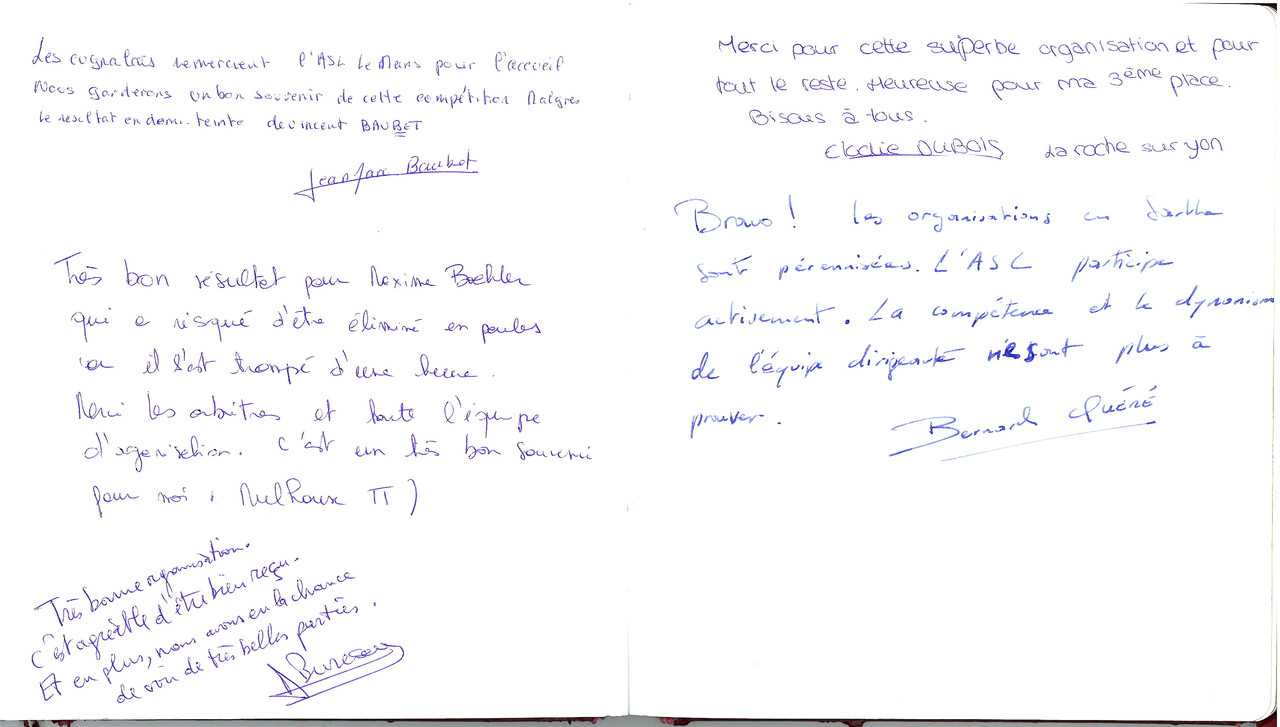 Les cugnalais remercient l'ASL Le Mans pour l'accueil
Nous garderons un bon souvenir de cette compétition Malgres
le resultat en demi-teinte de vincent BAUBET
Jean Marc Baubet
Très bon résultat pour Maxime Boehler
qui a risqué d'être éliminé en poules
car il s'est trompé d'une heure.
Merci les arbitres et toute l'équipe
d'organisation. C'est un très bon souvenir
pour moi, Mulhouse TT)
Très bonne organisation.
C'est agréable d'être bien reçu.
Et en plus, nous avons eu la chance
de voir de très belles parties.
Merci pour cette superbe organisation et pour
tout le reste. Heureuse pour ma 3ème place.
Bisous à tous.
Elodie DUBOIS La roche sur yon
Bravo! les organisations en Sarthe
sont pérennisées. L'ASL participe
activement. La compétence et le dynamism
de l'équipe dirigeante ne sont plus à
prouver.
Bernard QUÉRÉ